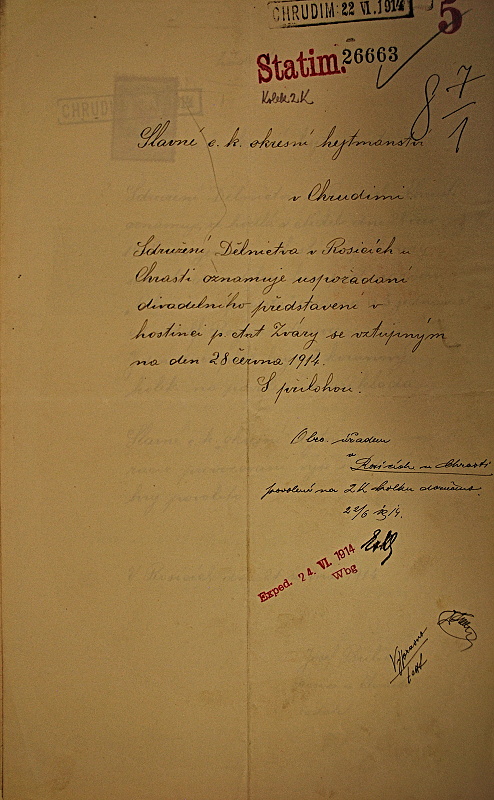 CHRUDIM 22 VI. 1914
5
Statim. 26663
Kolek 2 K
8 7/1
Slavné c. k. okresní hejtmanství
v Chrudimi
Sdružení Dělnictva v Rosicích u
Chrasti oznamuje uspořádání
divadelního představení v
hostinci p. Ant Zváry se vztupným
na den 28 června 1914.
S přílohou.
Obec. úřadem
v
Rosicích u Chrasti
povolení na 2 K kolku doručeno.
22/6 1914.
Exped. 24. VI. 1914
Wbg